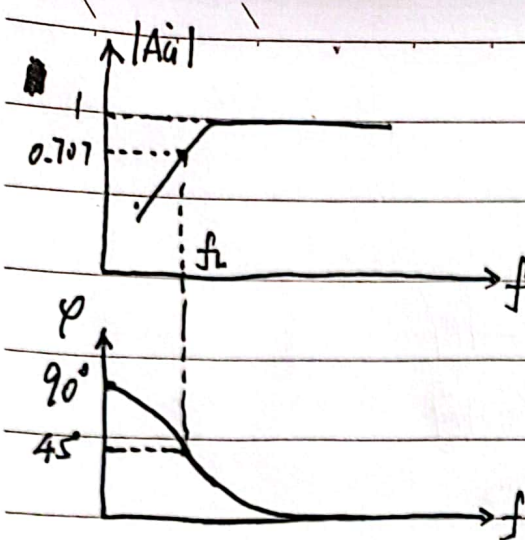 |Au̇|
1
0.707
fL
f
φ
90°
45°
f